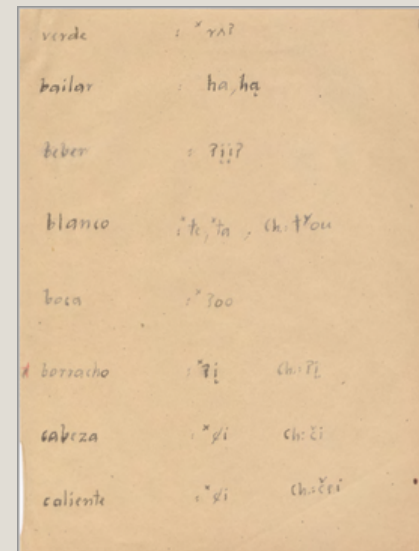 verde : *rʌʔ
bailar : ha, hą
beber : ʔįįʔ
blanco : *te, *ta, Ch:
boca : *ʔoo
borracho : *ʔį Ch: ʔį
cabeza : *ȼi Ch: či
caliente : *ȼi Ch: